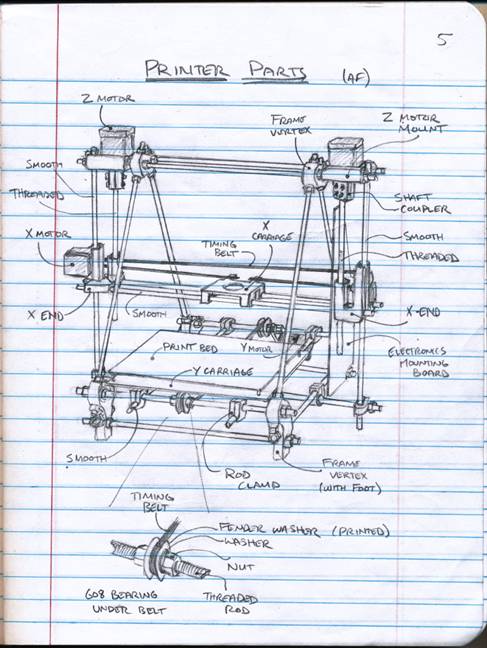 5
PRINTER PARTS (AF)
Z MOTOR
FRAME
VERTEX
Z MOTOR
MOUNT
SMOOTH
THREADED
SHAFT
COUPLER
X MOTOR
TIMING
BELT
X
CARRIAGE
SMOOTH
THREADED
X END
SMOOTH
X-END
PRINT BED
Y MOTOR
Y CARRIAGE
ELECTRONICS
MOUNTING
BOARD
SMOOTH
ROD
CLAMP
FRAME
VERTEX
(WITH FOOT)
TIMING
BELT
FENDER WASHER (PRINTED)
WASHER
NUT
608 BEARING
UNDER BELT
THREADED
ROD